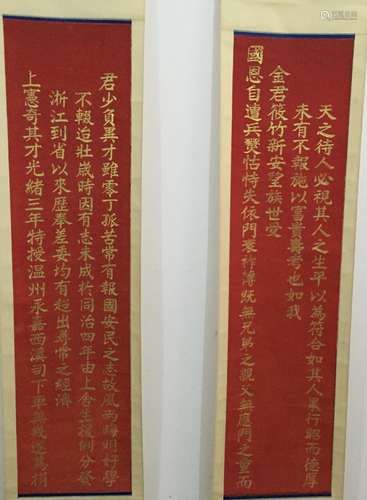 天之待人必視其人之生平以為符合如其人累行昭而德厚
未有不報施以富貴壽考也如我
金君筱竹新安望族世受
國恩自遭兵燹怙恃失依門衰祚薄既無兄弟之親又無應門之童而
君少負異才雖零丁孤苦常有報國安民之志故風雨晦明好學
不輟迨壯歲時因有志未成於同治四年由上舍生援例分發
浙江到省以來歷奉差委均有超出尋常之經濟
上憲奇其才光緒三年特授温州永嘉西溪司下車